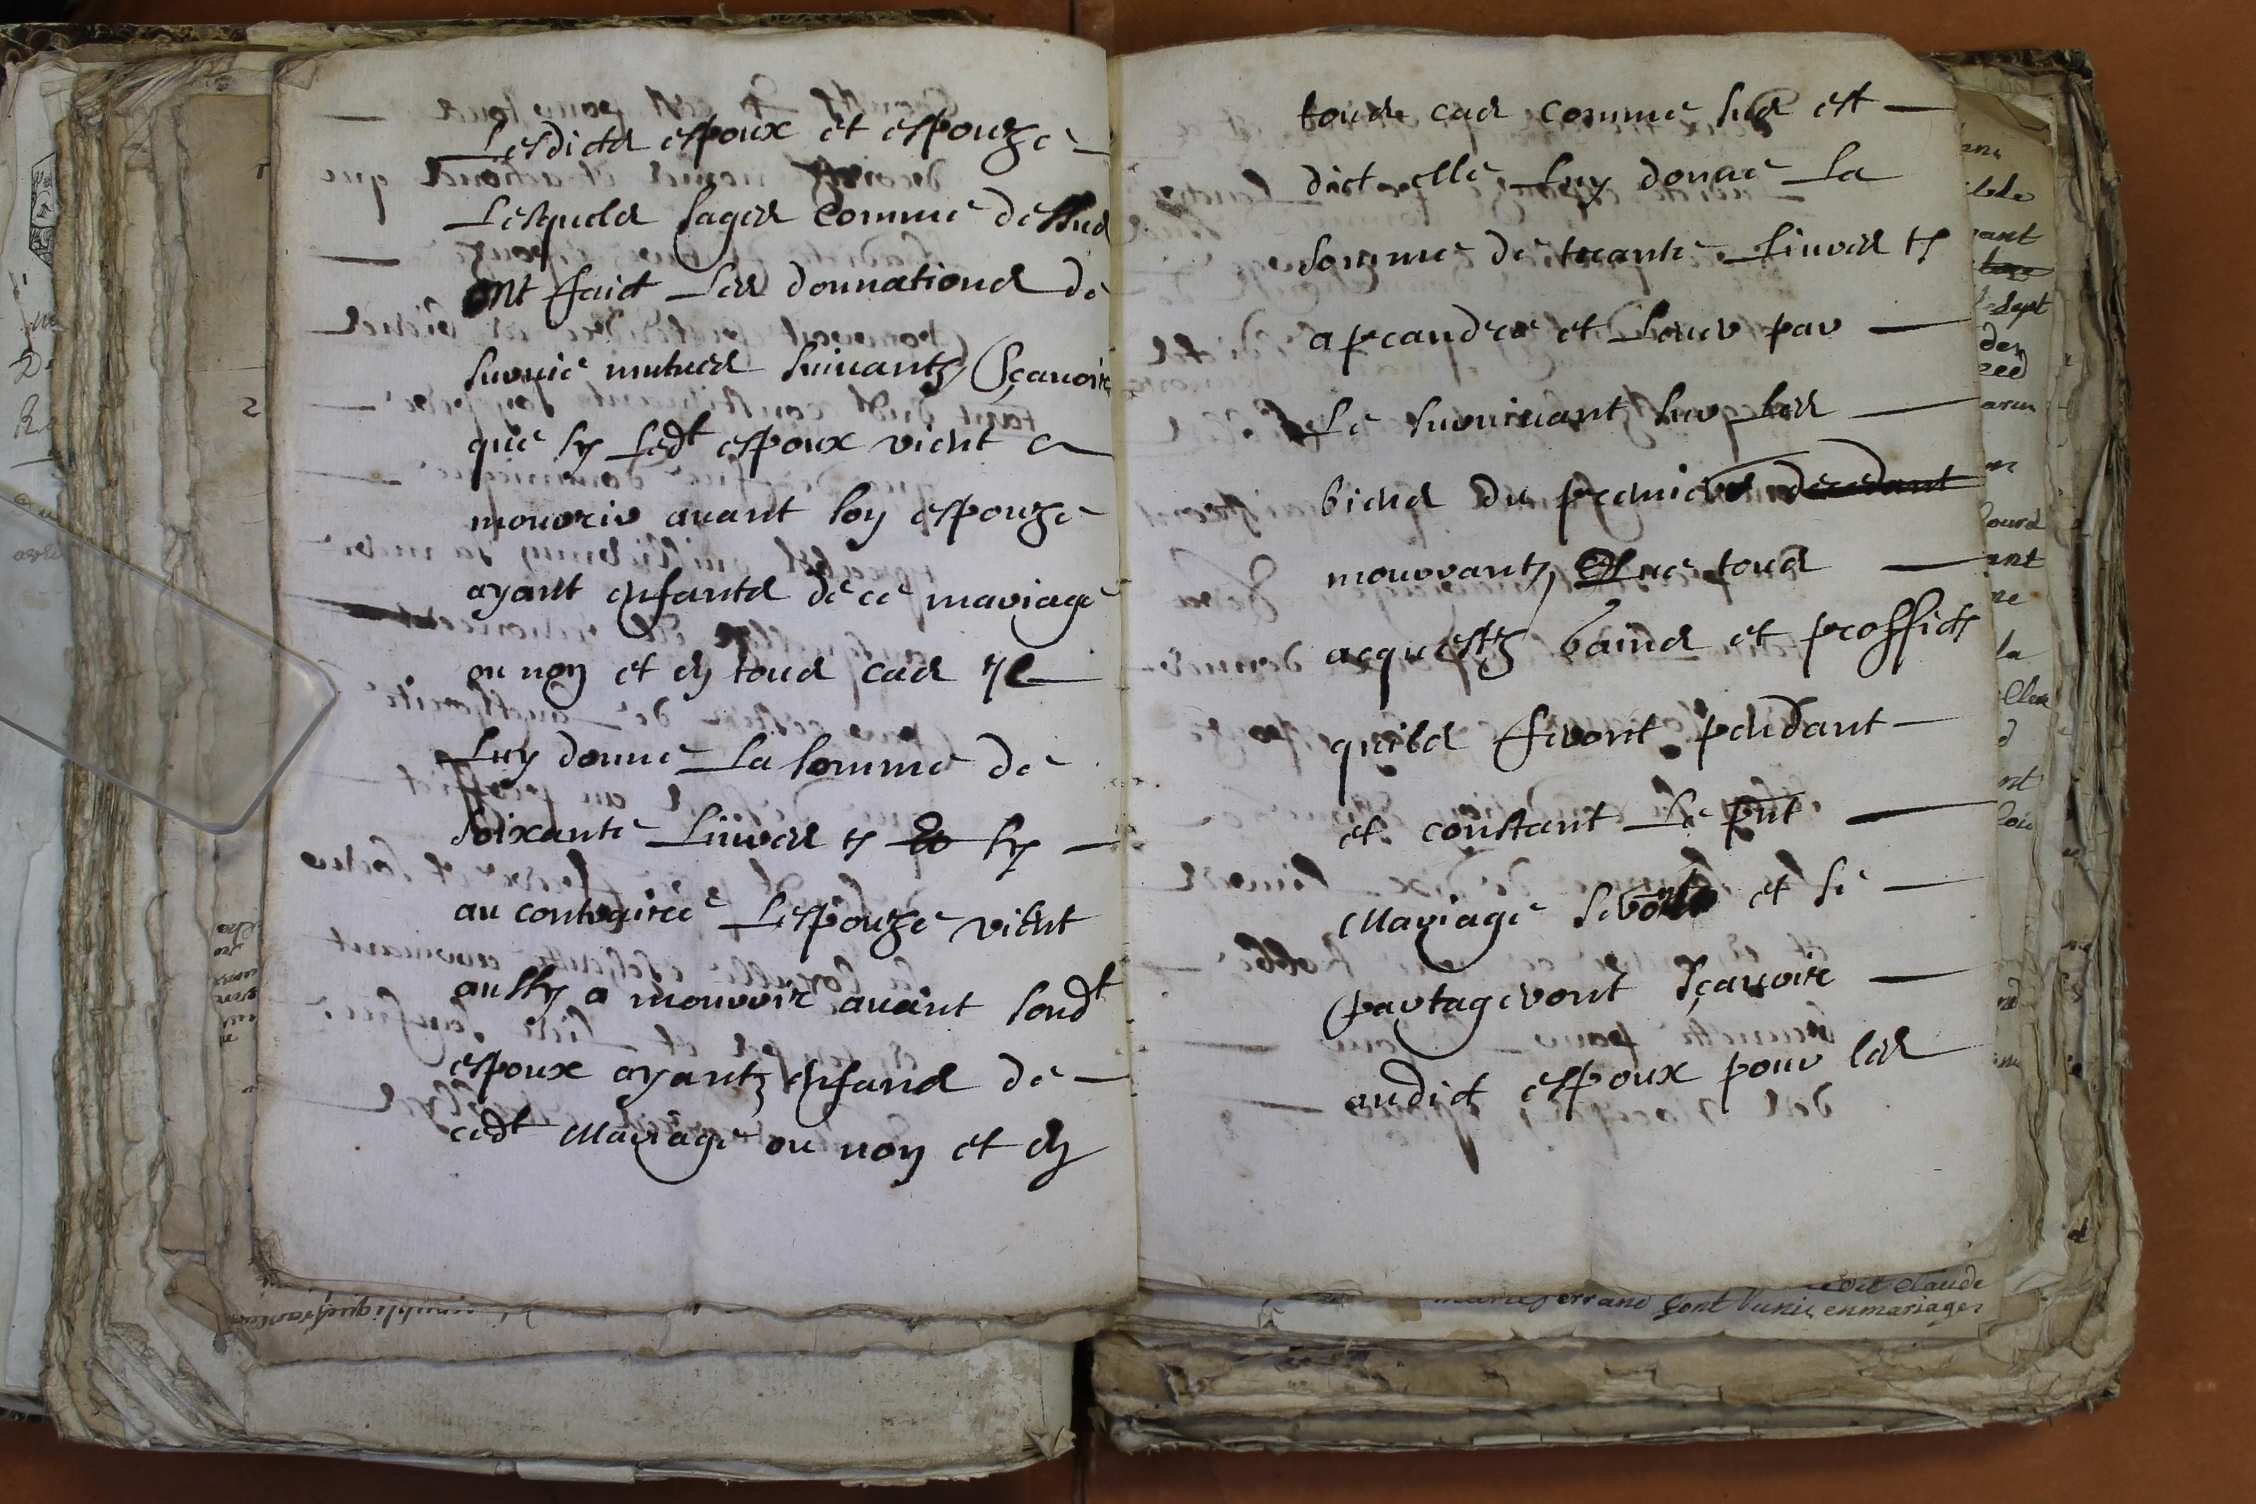 Lesdicts espoux et espouze
Lesquels sages comme dessus
ont faict les donnations de
survie mutues suivantz Sçavoir
que sy ledt espoux vient a
mourrir avant son espouze
ayant enfants de ce mariage
ou non et en tous cas yl
luy donne la somme de
soixante livres ts sy
au contraire Lespouze vient
aussy a mourir avant sondt
espoux ayantz enfans de
cedt Mariage ou non et en
tous cas comme sus est
dict elle luy donne la
somme de trante livres ts
a prandre et lever par
Le survivant sur les
biens du premier decedant
mourrantz Que tous
acquestz gains et proffictz
quils feront pendant
et constant Le pnt
Mariage seront et se
partageront sçavoir
audict espoux pour les
2
edit Claude
ferrand sont unis en mariages
republique francoise